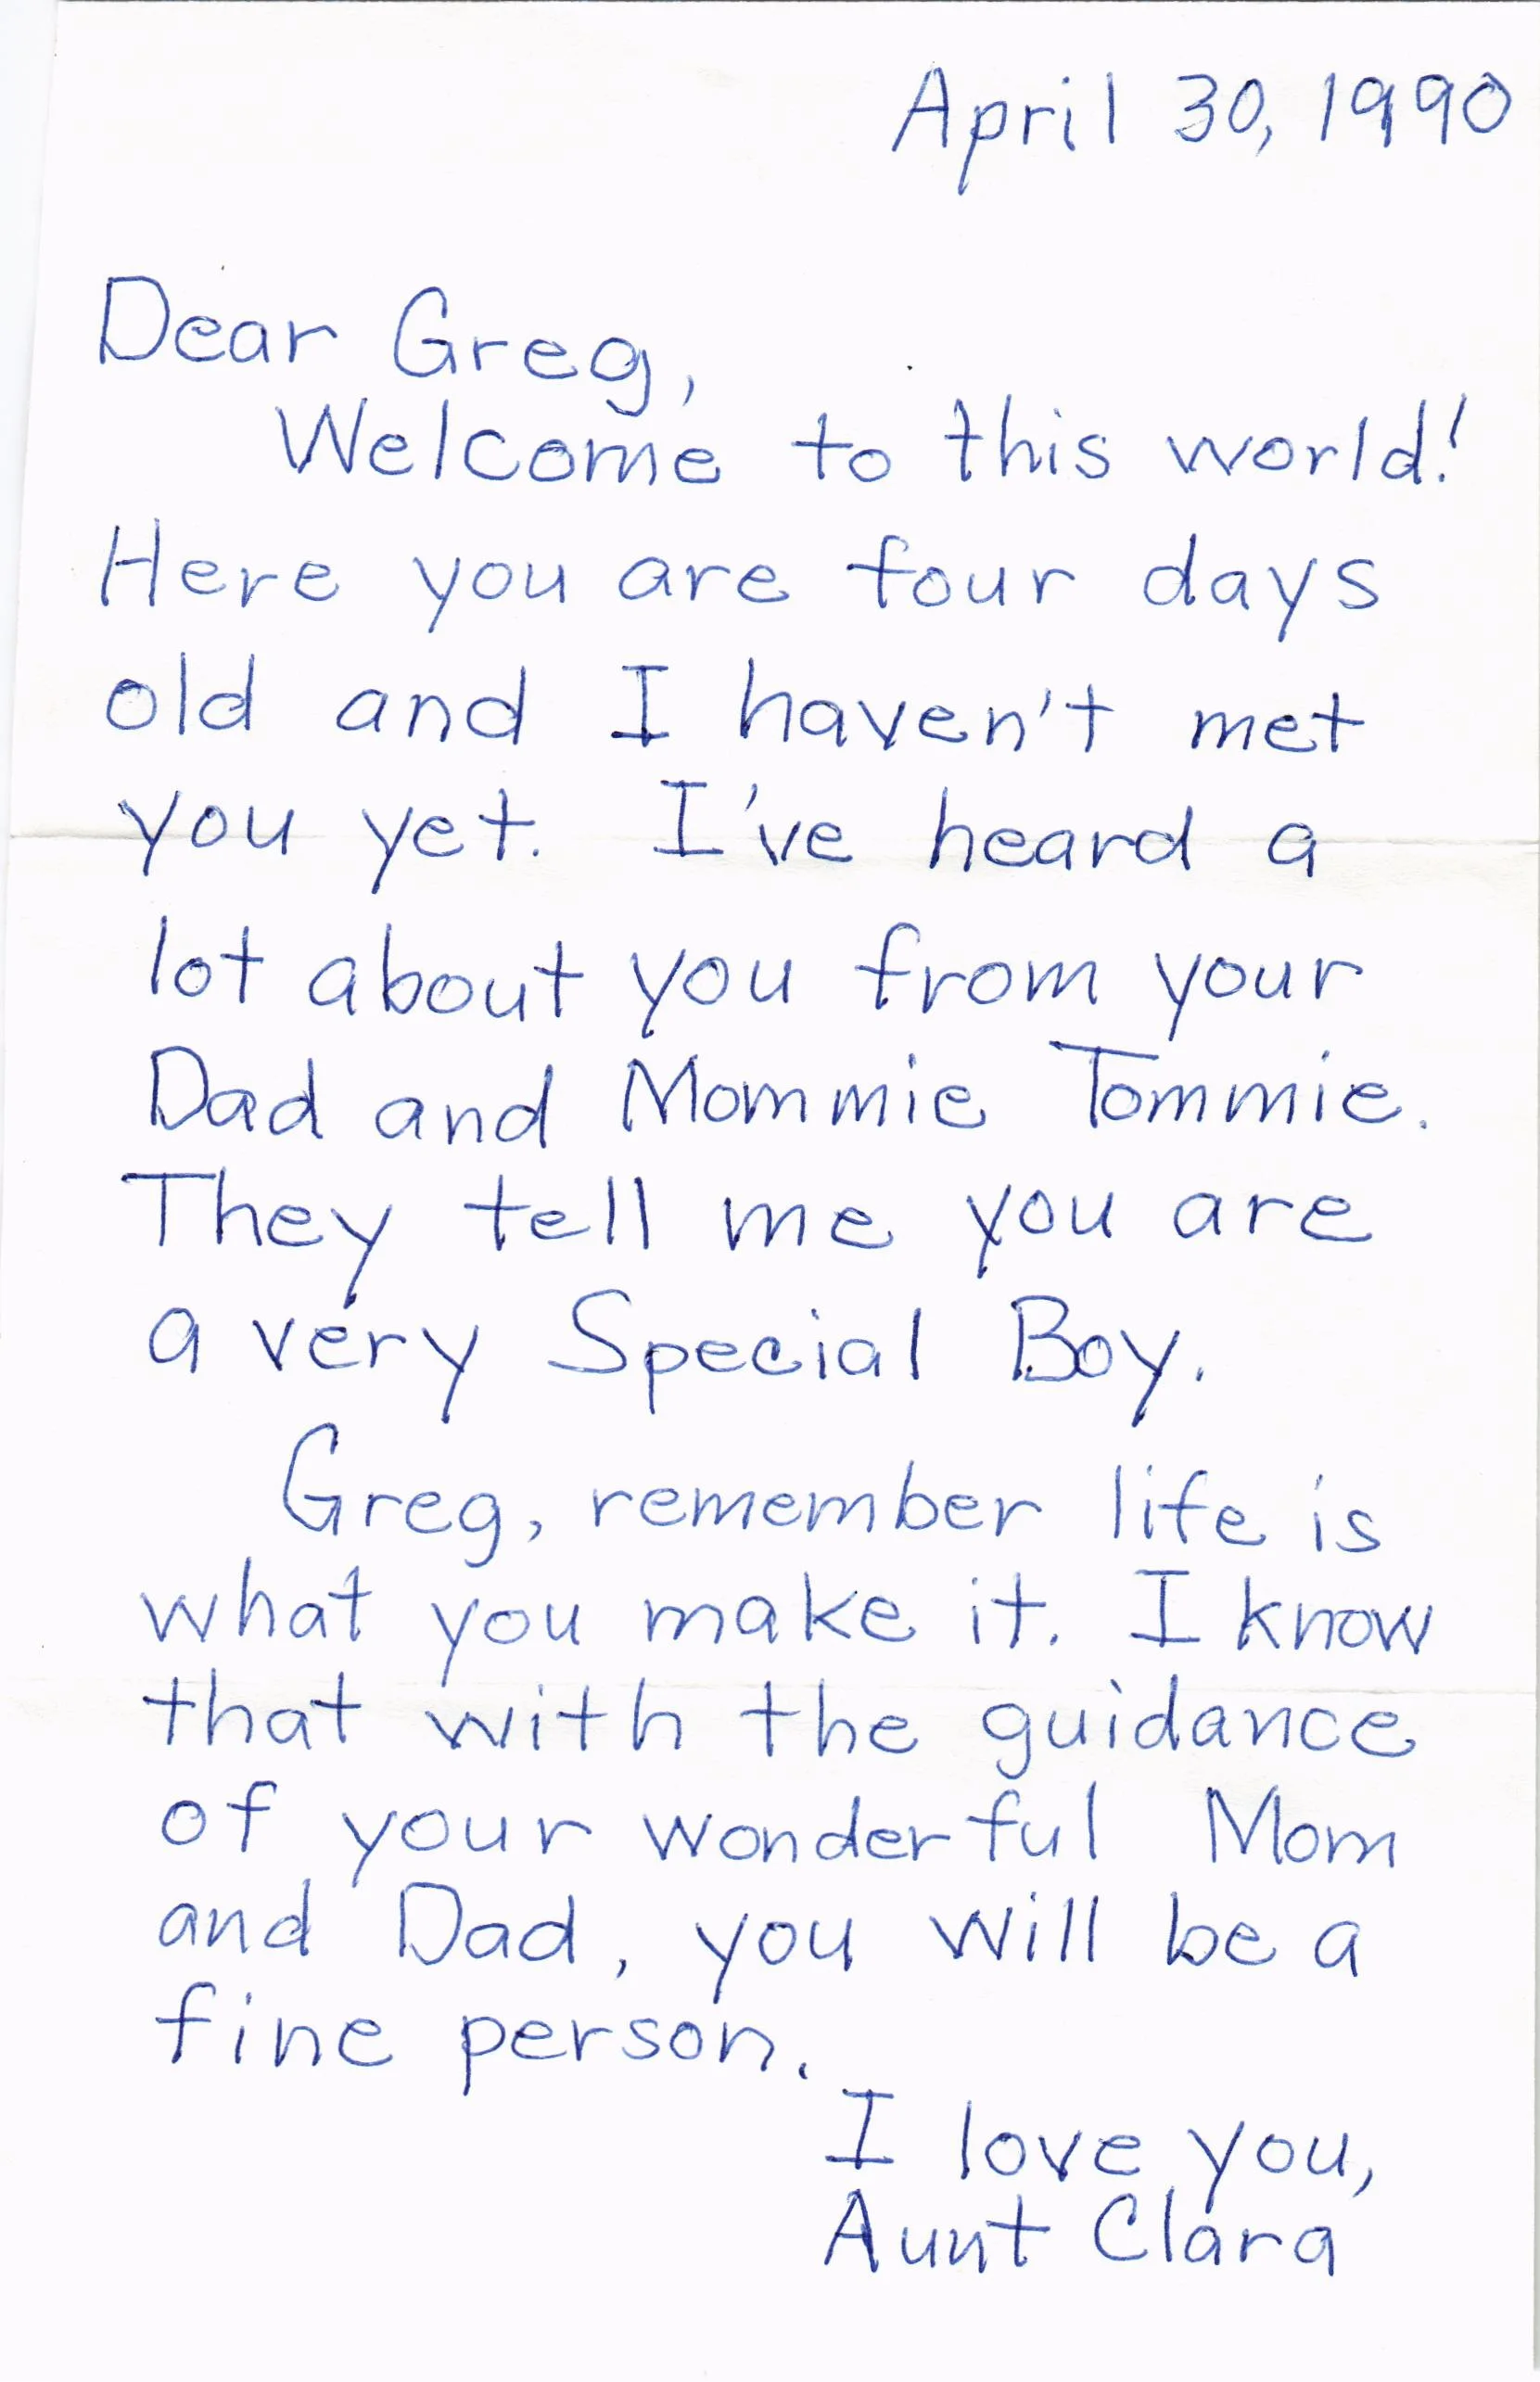 April 30, 1990
Dear Greg,
Welcome to this world!
Here you are four days
old and I haven't met
you yet. I've heard a
lot about you from your
Dad and Mommie Tommie.
They tell me you are
a very Special Boy.
Greg, remember life is
what you make it. I know
that with the guidance
of your wonderful Mom
and Dad, you will be a
fine person.
I love you,
Aunt Clara